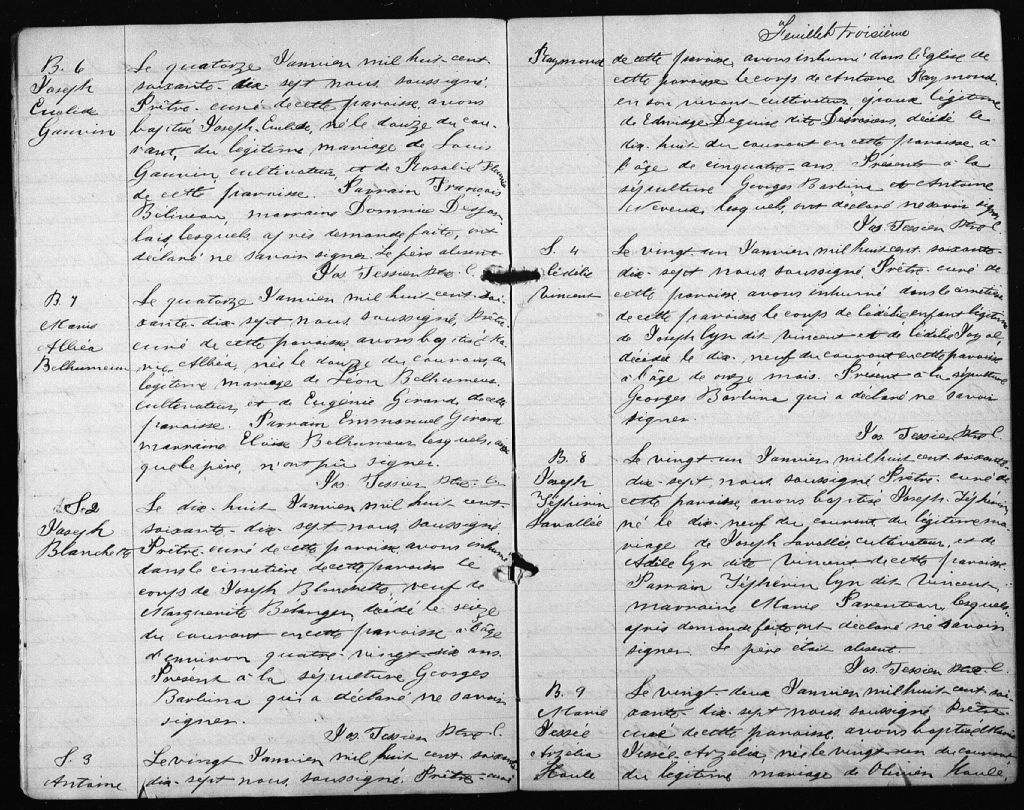 B. 6
Joseph
Euclide
Gauvin
Le quatorze Janvier mil huit cent
soixante-dix sept nous soussigné,
Prêtre-curé de cette paroisse avons
baptisé Joseph-Euclide, né le douze du cou-
rant, du légitime mariage de Louis
Gauvin cultivateur, et de Rosalie
de cette paroisse. Parrain François
Beliveau, marraine Domnise Desjar-
lais, lesquels, après demande faite, ont
déclaré ne savoir signer. Le père absent
Jos. Tessier Ptre C.
B 7
Marie
Albéa
Belhumeur
Le quatorze Janvier mil huit cent soi-
xante-dix-sept nous, soussigné, Prêtre-
curé de cette paroisse avons baptisé Ma-
rie-Albéa, née le douze du courant, du
légitime mariage de Léon Belhumeur,
cultivateur, et de Eugenie Girard, de cette
paroisse. Parrain Emmanuel Girard
marraine Eloise Belhumeur lesquels, ainsi
que le père, n'ont pu signer.
Jos. Tessier Ptre C.
S. 2
Joseph
Blanchette
Le dix-huit Janvier mil huit cent
soixante-dix-sept nous, soussigné
Prêtre-curé de cette paroisse avons inhumé
dans le cimetière de cette paroisse le
corps de Joseph Blanchette, veuf de
Marguerite Belanger, décédé le seize
du courant en cette paroisse à l'âge
d'environ quatre-vingt-dix ans.
Présent à la sépulture Georges
Barbina qui a déclaré ne savoir
signer.
Jos. Tessier Ptre C.
S. 3
Antoine
Le vingt Janvier mil huit cent soixante
dix-sept nous, soussigné, Prêtre-curé
Feuillet troisième
Raymond
de cette paroisse, avons inhumé dans l'Eglise de
cette paroisse le corps de Antoine Raymond
en son vivant cultivateur, époux légitime
de Edwidge Deguise dite Desrosiers, décédé le
dix-huit du courant en cette paroisse à
l'âge de cinquante ans. Présents à la
sépulture Georges Barbina et Antoine
Neveux, lesquels, ont déclaré ne savoir signer
Jos Tessier Ptre C.
S. 4
Cédélie
Vincent
Le vingt un Janvier mil huit cent soixante
dix-sept nous, soussigné, Prêtre-curé de
cette paroisse, avons inhumé dans le cimetière
de cette paroisse le corps de Cédélie enfant légitime
de Joseph Cyr dit Vincent et de Cédélie Joyal,
décédée le dix-neuf du courant en cette paroisse
à l'âge de onze mois. Présent à la sépulture
Georges Barbina qui a déclaré ne savoir
signer.
Jos. Tessier Ptre C.
B. 8
Joseph
Zéphirin
Lavallée
Le vingt un Janvier mil huit cent soixante
dix-sept nous, soussigné Prêtre-curé de
cette paroisse, avons baptisé Joseph-Zéphirin
né le dix-neuf du courant du légitime ma-
riage de Joseph Lavallée, cultivateur, et de
Adèle Cyr dite Vincent de cette paroisse.
Parrain Zéphirin Cyr dit Vincent
marraine Marie Parenteau lesquels,
après demande faite, ont déclaré ne savoir
signer. Le père était absent.
Jos. Tessier Ptre C.
B. 9
Marie
Jessée
Arzelia
Houle
Le vingt-deux Janvier mil huit cent soi-
xante-dix-sept nous, soussigné Prêtre
curé de cette paroisse, avons baptisé Marie
Jessée Arzelia, née le vingt-un du courant
du légitime mariage de Olivier Houle,